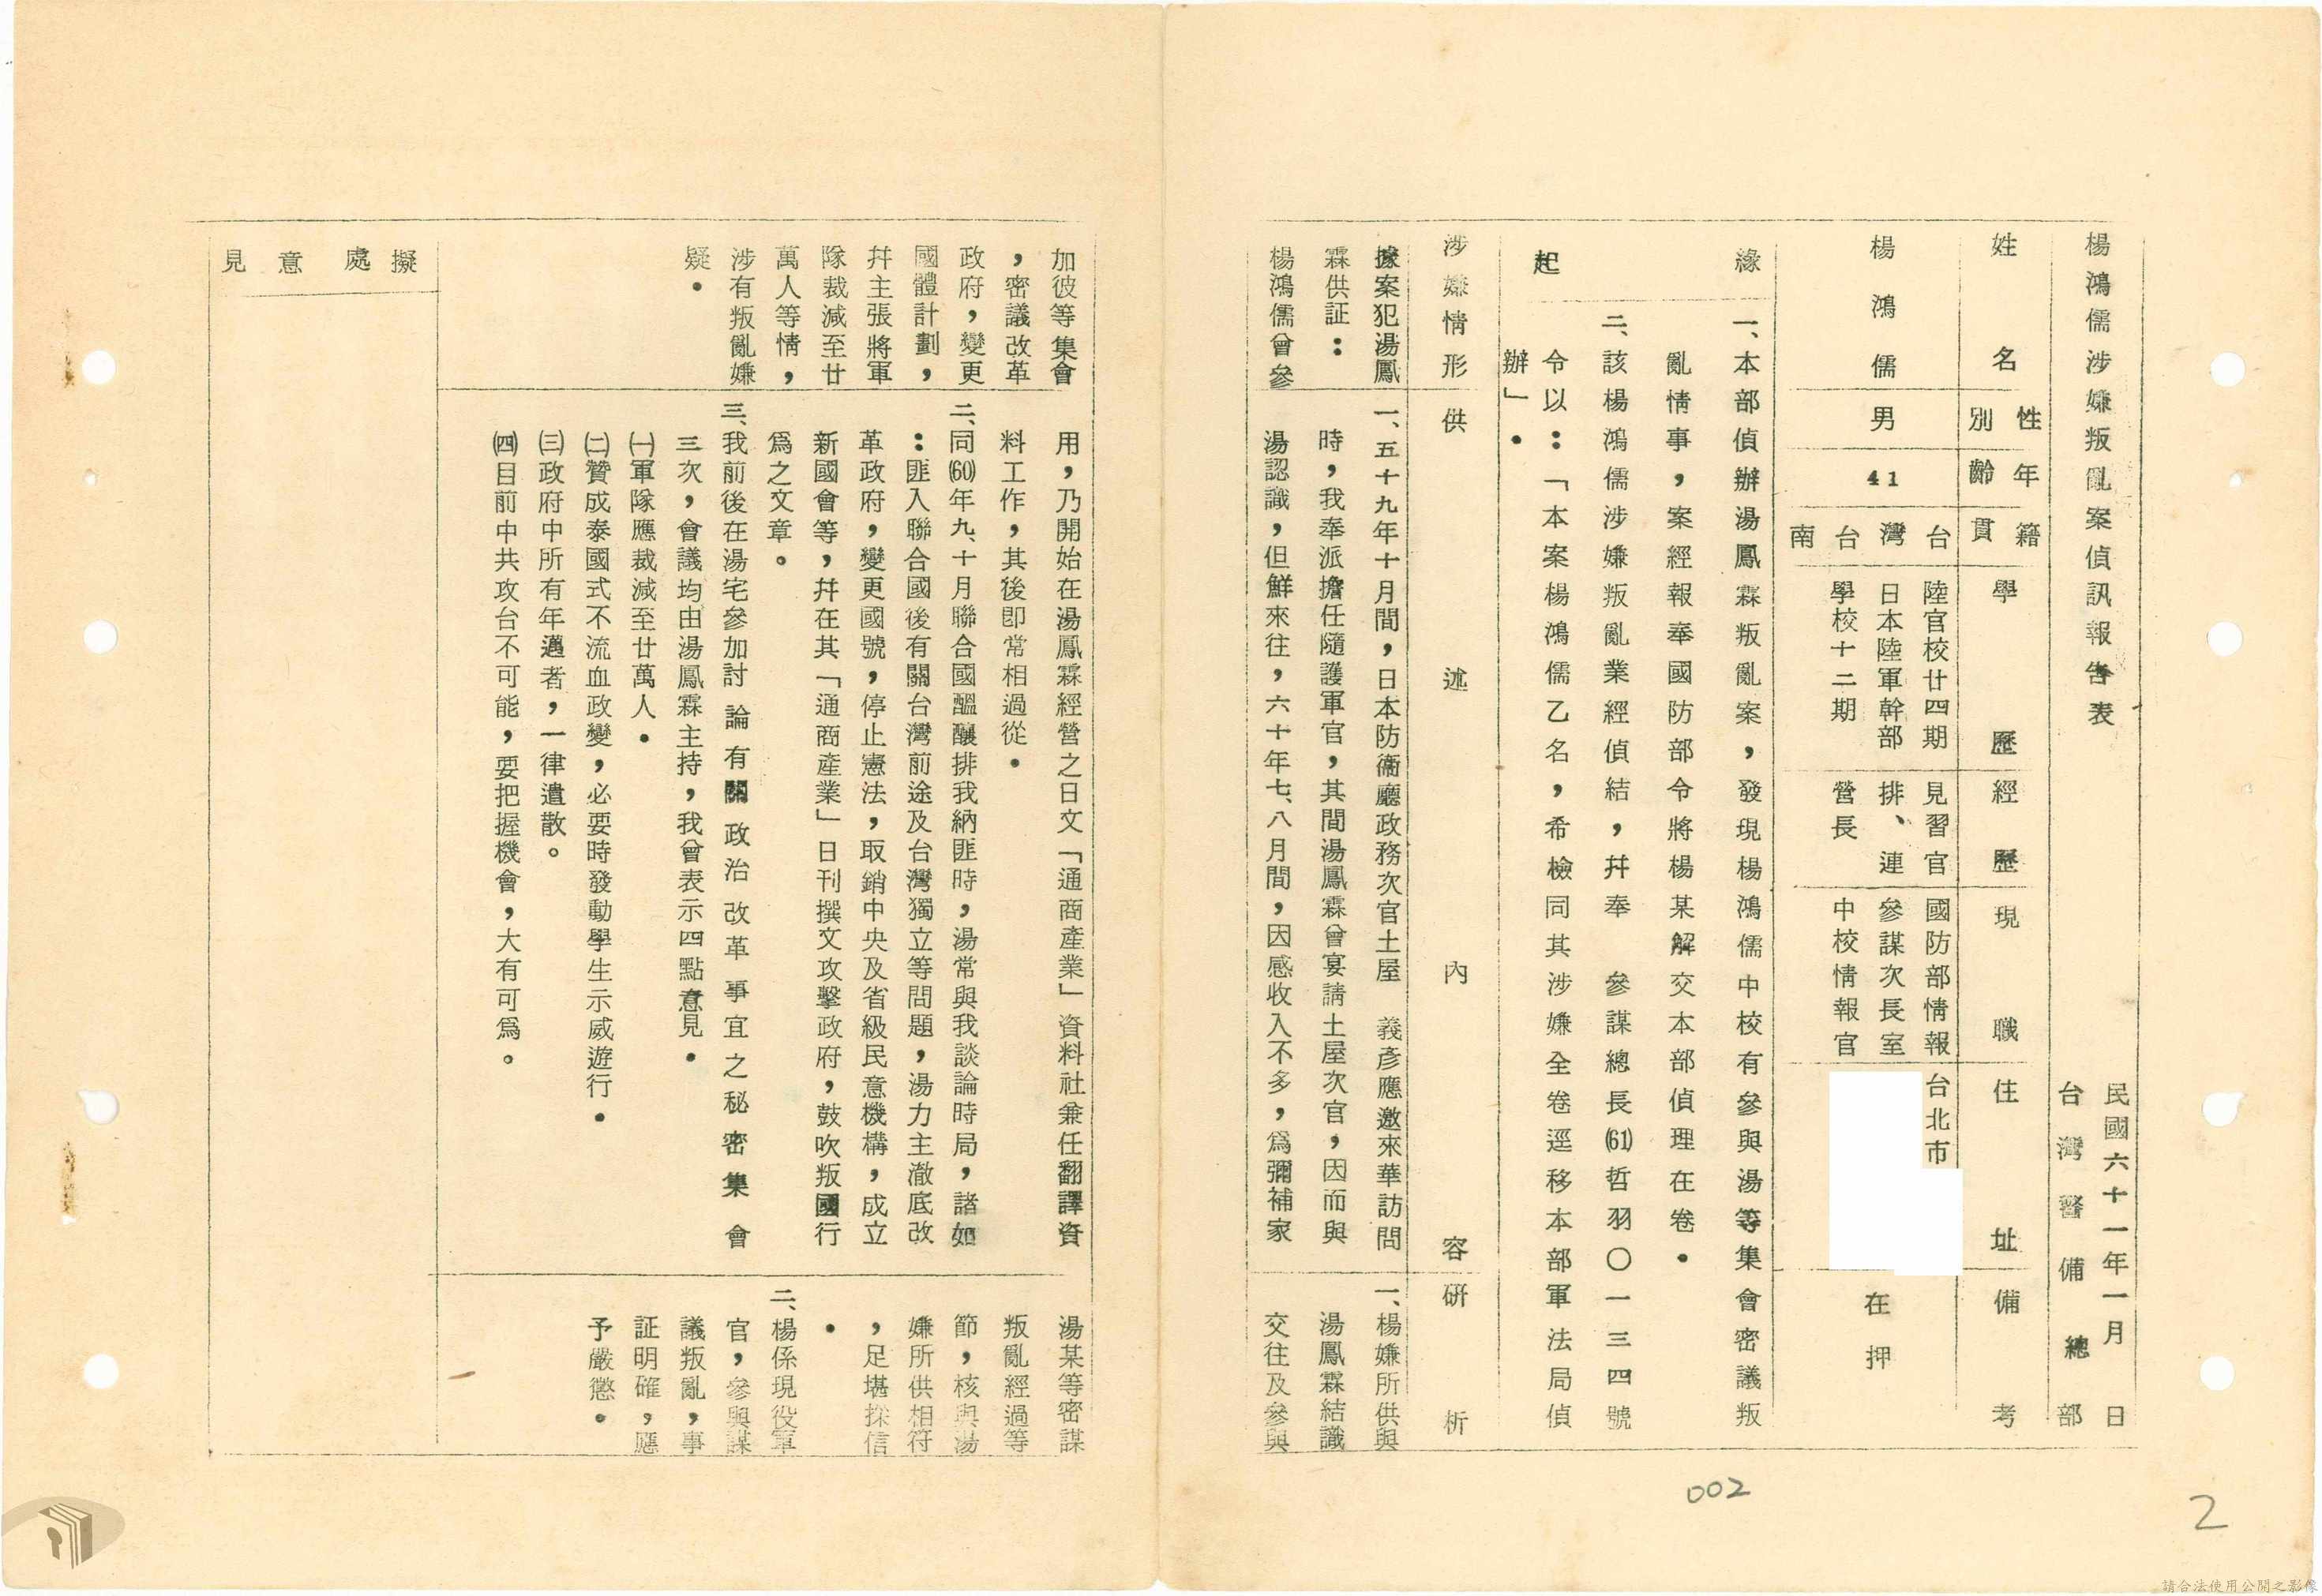 楊鴻儒涉嫌叛亂案偵訊報告表
民國六十一年一月 日
台灣警備總部
姓名
性別
年齡
籍貫
學歷
經歷
現職
住址
備考
楊鴻儒
男
41
台灣台南
陸官校廿四期
日本陸軍幹部
學校十二期
見習官
排、連
營長
國防部情報
參謀次長室
中校情報官
台北市
在押
緣起
一、本部偵辦湯鳳霖叛亂案,發現楊鴻儒中校有參與湯等集會密議叛
亂情事,案經報奉國防部令將楊某解交本部偵理在卷。
二、該楊鴻儒涉嫌叛亂業經偵結,幷奉 參謀總長(61)哲羽〇一三四號
令以:「本案楊鴻儒乙名,希檢同其涉嫌全卷逕移本部軍法局偵
辦」。
涉嫌情形
供述內容
研析
據案犯湯鳳
霖供証:
楊鴻儒曾參
一、五十九年十月間,日本防衞廳政務次官土屋 義彥應邀來華訪問
時,我奉派擔任隨護軍官,其間湯鳳霖曾宴請土屋次官,因而與
湯認識,但鮮來往,六十年七、八月間,因感收入不多,爲彌補家
一、楊嫌所供與
湯鳳霖結識
交往及參與
加彼等集會
,密議改革
政府,變更
國體計劃,
幷主張將軍
隊裁減至廿
萬人等情,
涉有叛亂嫌
疑。
用,乃開始在湯鳳霖經營之日文「通商產業」資料社兼任翻譯資
料工作,其後即常相過從。
二、同(60)年九、十月聯合國醞釀排我納匪時,湯常與我談論時局,諸如
:匪入聯合國後有關台灣前途及台灣獨立等問題,湯力主澈底改
革政府,變更國號,停止憲法,取銷中央及省級民意機構,成立
新國會等,幷在其「通商產業」日刊撰文攻擊政府,鼓吹叛國行
爲之文章。
三、我前後在湯宅參加討論有關政治改革事宜之秘密集會
三次,會議均由湯鳳霖主持,我曾表示四點意見。
㈠軍隊應裁減至廿萬人。
㈡贊成泰國式不流血政變,必要時發動學生示威遊行。
㈢政府中所有年邁者,一律遣散。
㈣目前中共攻台不可能,要把握機會,大有可爲。
湯某等密謀
叛亂經過等
節,核與湯
嫌所供相符
,足堪採信
。
二、楊係現役軍
官,參與謀
議叛亂,事
証明確,應
予嚴懲。
擬處意見
002
2
請合法使用公開之影像